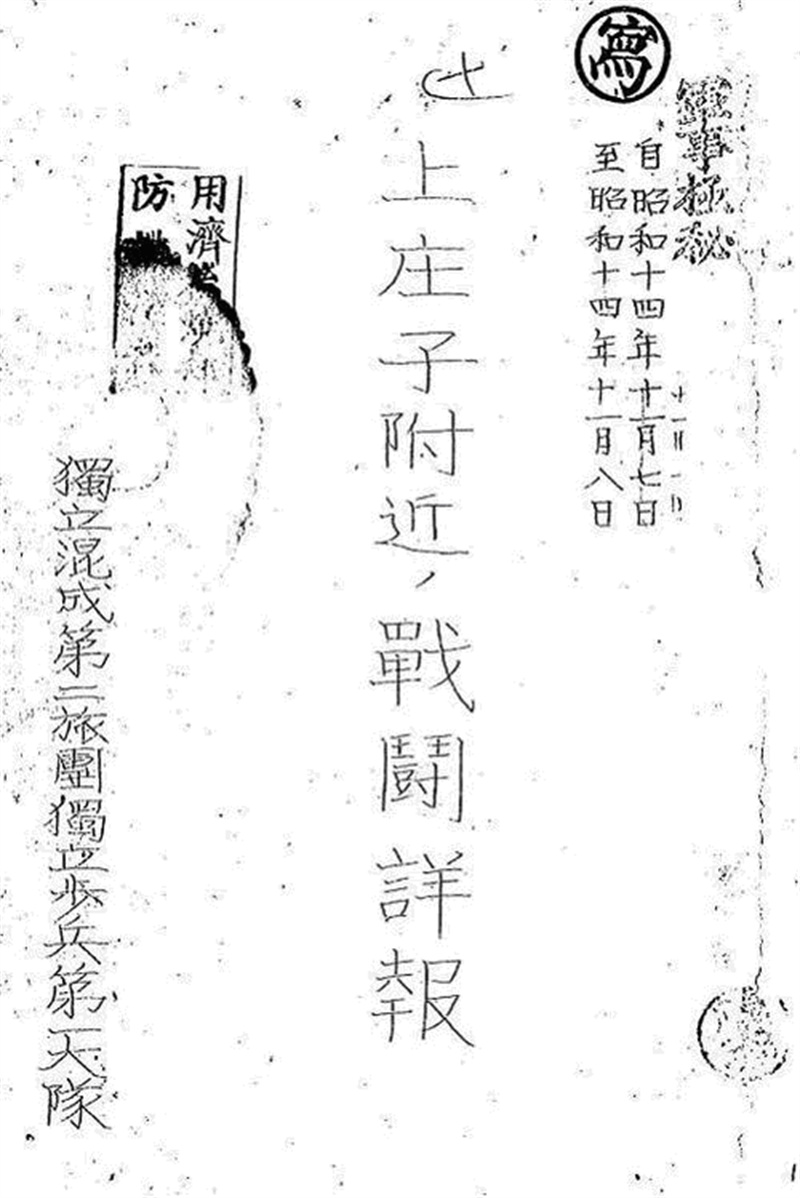 寫
軍事極秘
自昭和十四年十一月七日
至昭和十四年十一月八日
上庄子附近ノ戰鬪詳報
用濟
防
獨立混成第二旅團獨立歩兵第一大隊